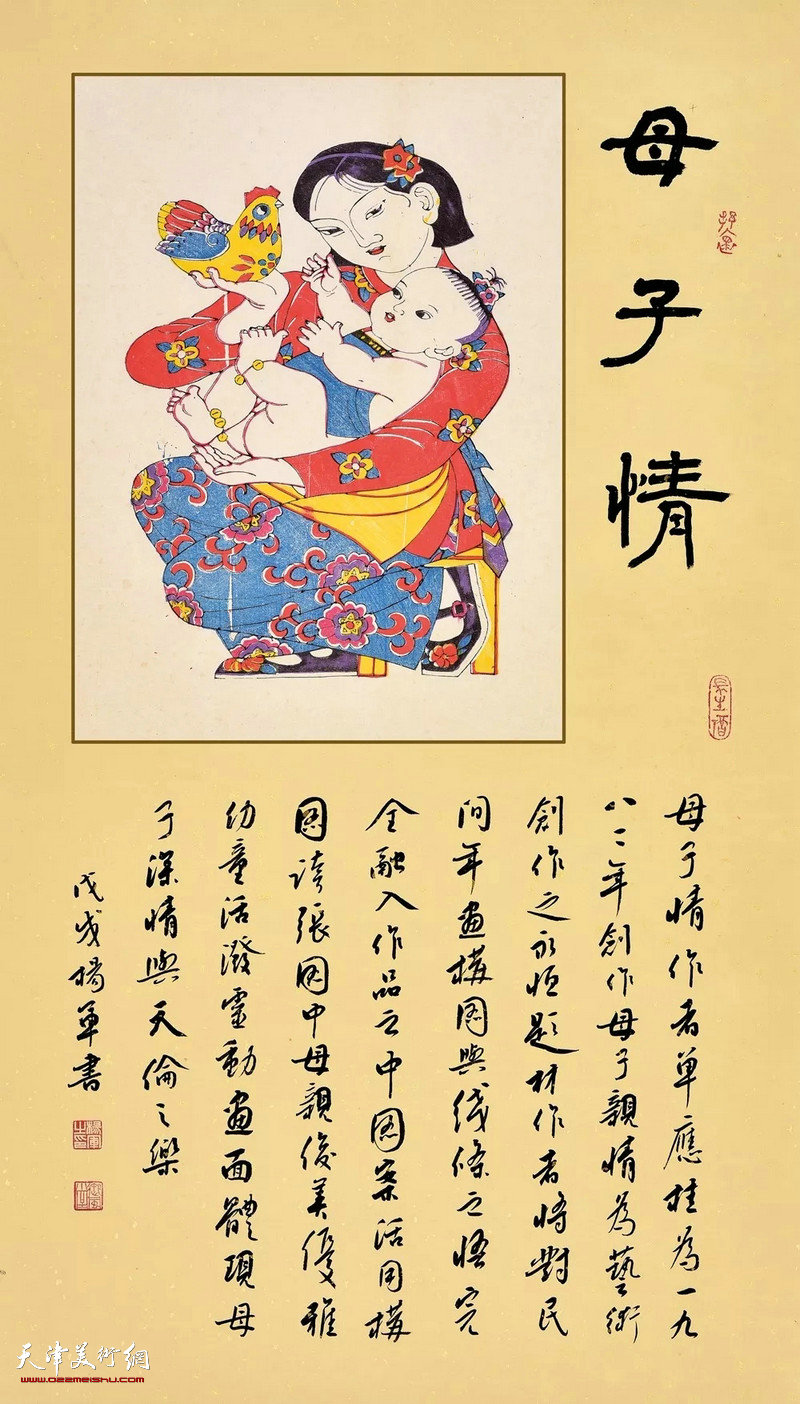 母子情
母子情作者单應桂為一九
八二年創作母子親情為藝術
創作之永恒題材作者將對民
间年畫構图與线條之悟完
全融入作品之中图案活用構
图誇張图中母親俊美優雅
幼童活潑靈動畫面體現母
子深情與天倫之樂
戊戌楊軍書
天津美術網
www.022meishu.com